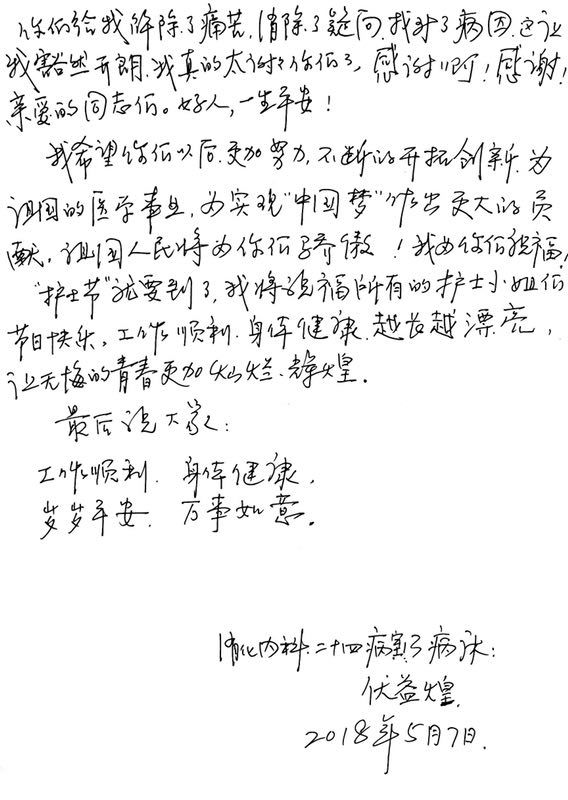 你们给我解除了痛苦，消除了疑问，找到了病因，这让
我豁然开朗，我真的太谢谢你们了，感谢啊！感谢！
亲爱的同志们。好人，一生平安！
我希望你们以后更加努力，不断的开拓创新，为
祖国的医学事业，为实现"中国梦"作出更大的贡
献，祖国人民将为你们骄傲！我为你们祝福，
"护士节"就要到了，我将祝福所有的护士小姐们
节日快乐，工作顺利，身体健康，越长越漂亮，
让无悔的青春更加灿烂、辉煌。
最后祝大家：
工作顺利，身体健康，
岁岁平安，万事如意。
消化内科：二十四病室3病床：
伏益煌
2018年5月7日.